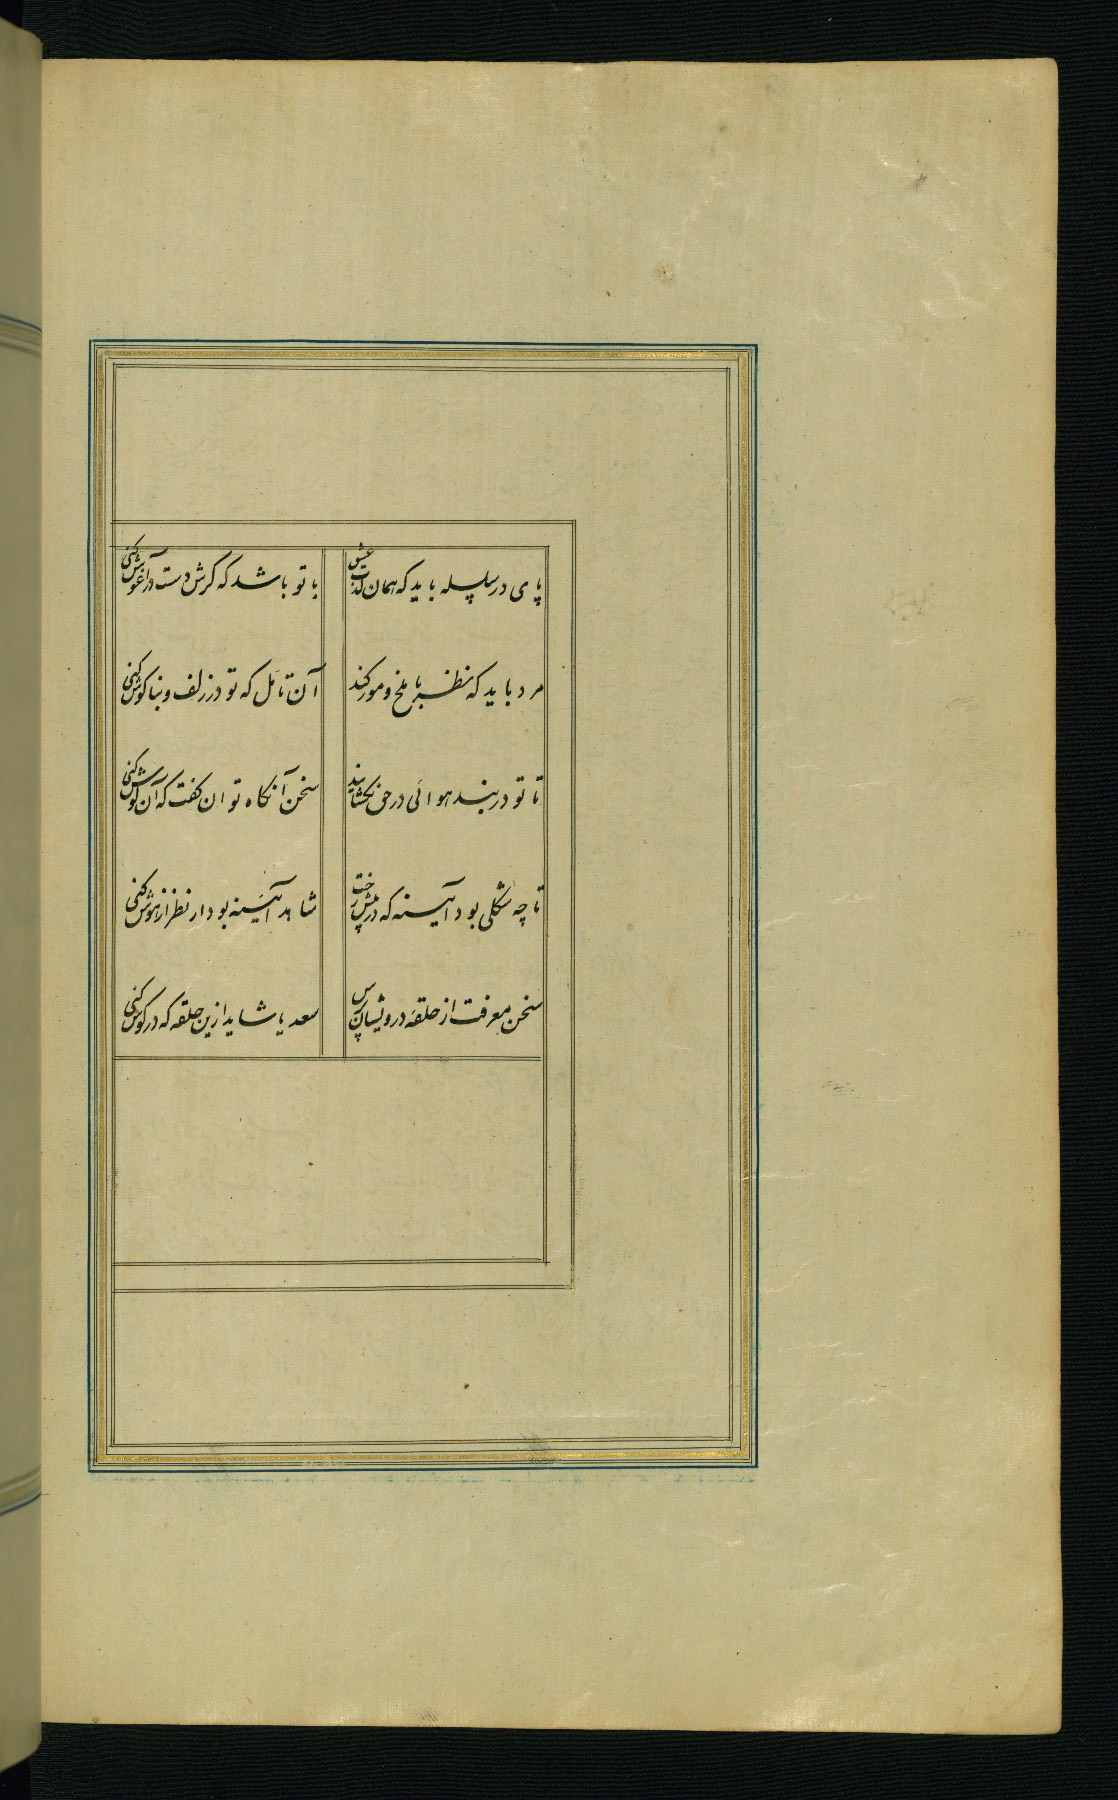 پای در سلسله باید که همان لذت عشق
با تو باشد که گرش دست در آغوش کنی
مرد باید که نظر با ملخ و مور کند
آن تأمل که تو در زلف و بناگوش کنی
تا تو در بند هوائی در حق نگشایند
سخن آنگاه توان گفت که آن گوش کنی
تا چه شکلی بود آئینه که در پیش رخت
شاهد آئینه بود ار نظر از هوش کنی
سخن معرفت از حلقهٔ درویشان پرس
سعدیا شاید ازین حلقه که در گوش کنی